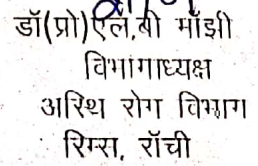 डॉ(प्रो)एल.बी मॉझी
विभागाध्यक्ष
अस्थि रोग विभाग
रिम्स, रॉची